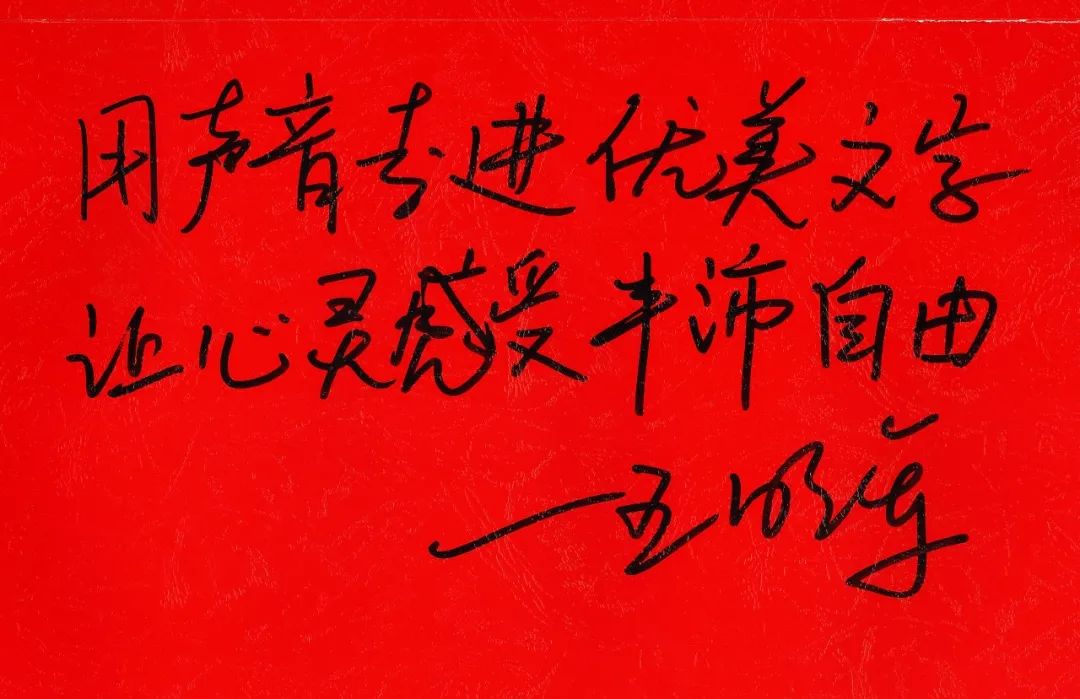 用声音走进优美文学
让心灵感受丰沛自由
—王明军